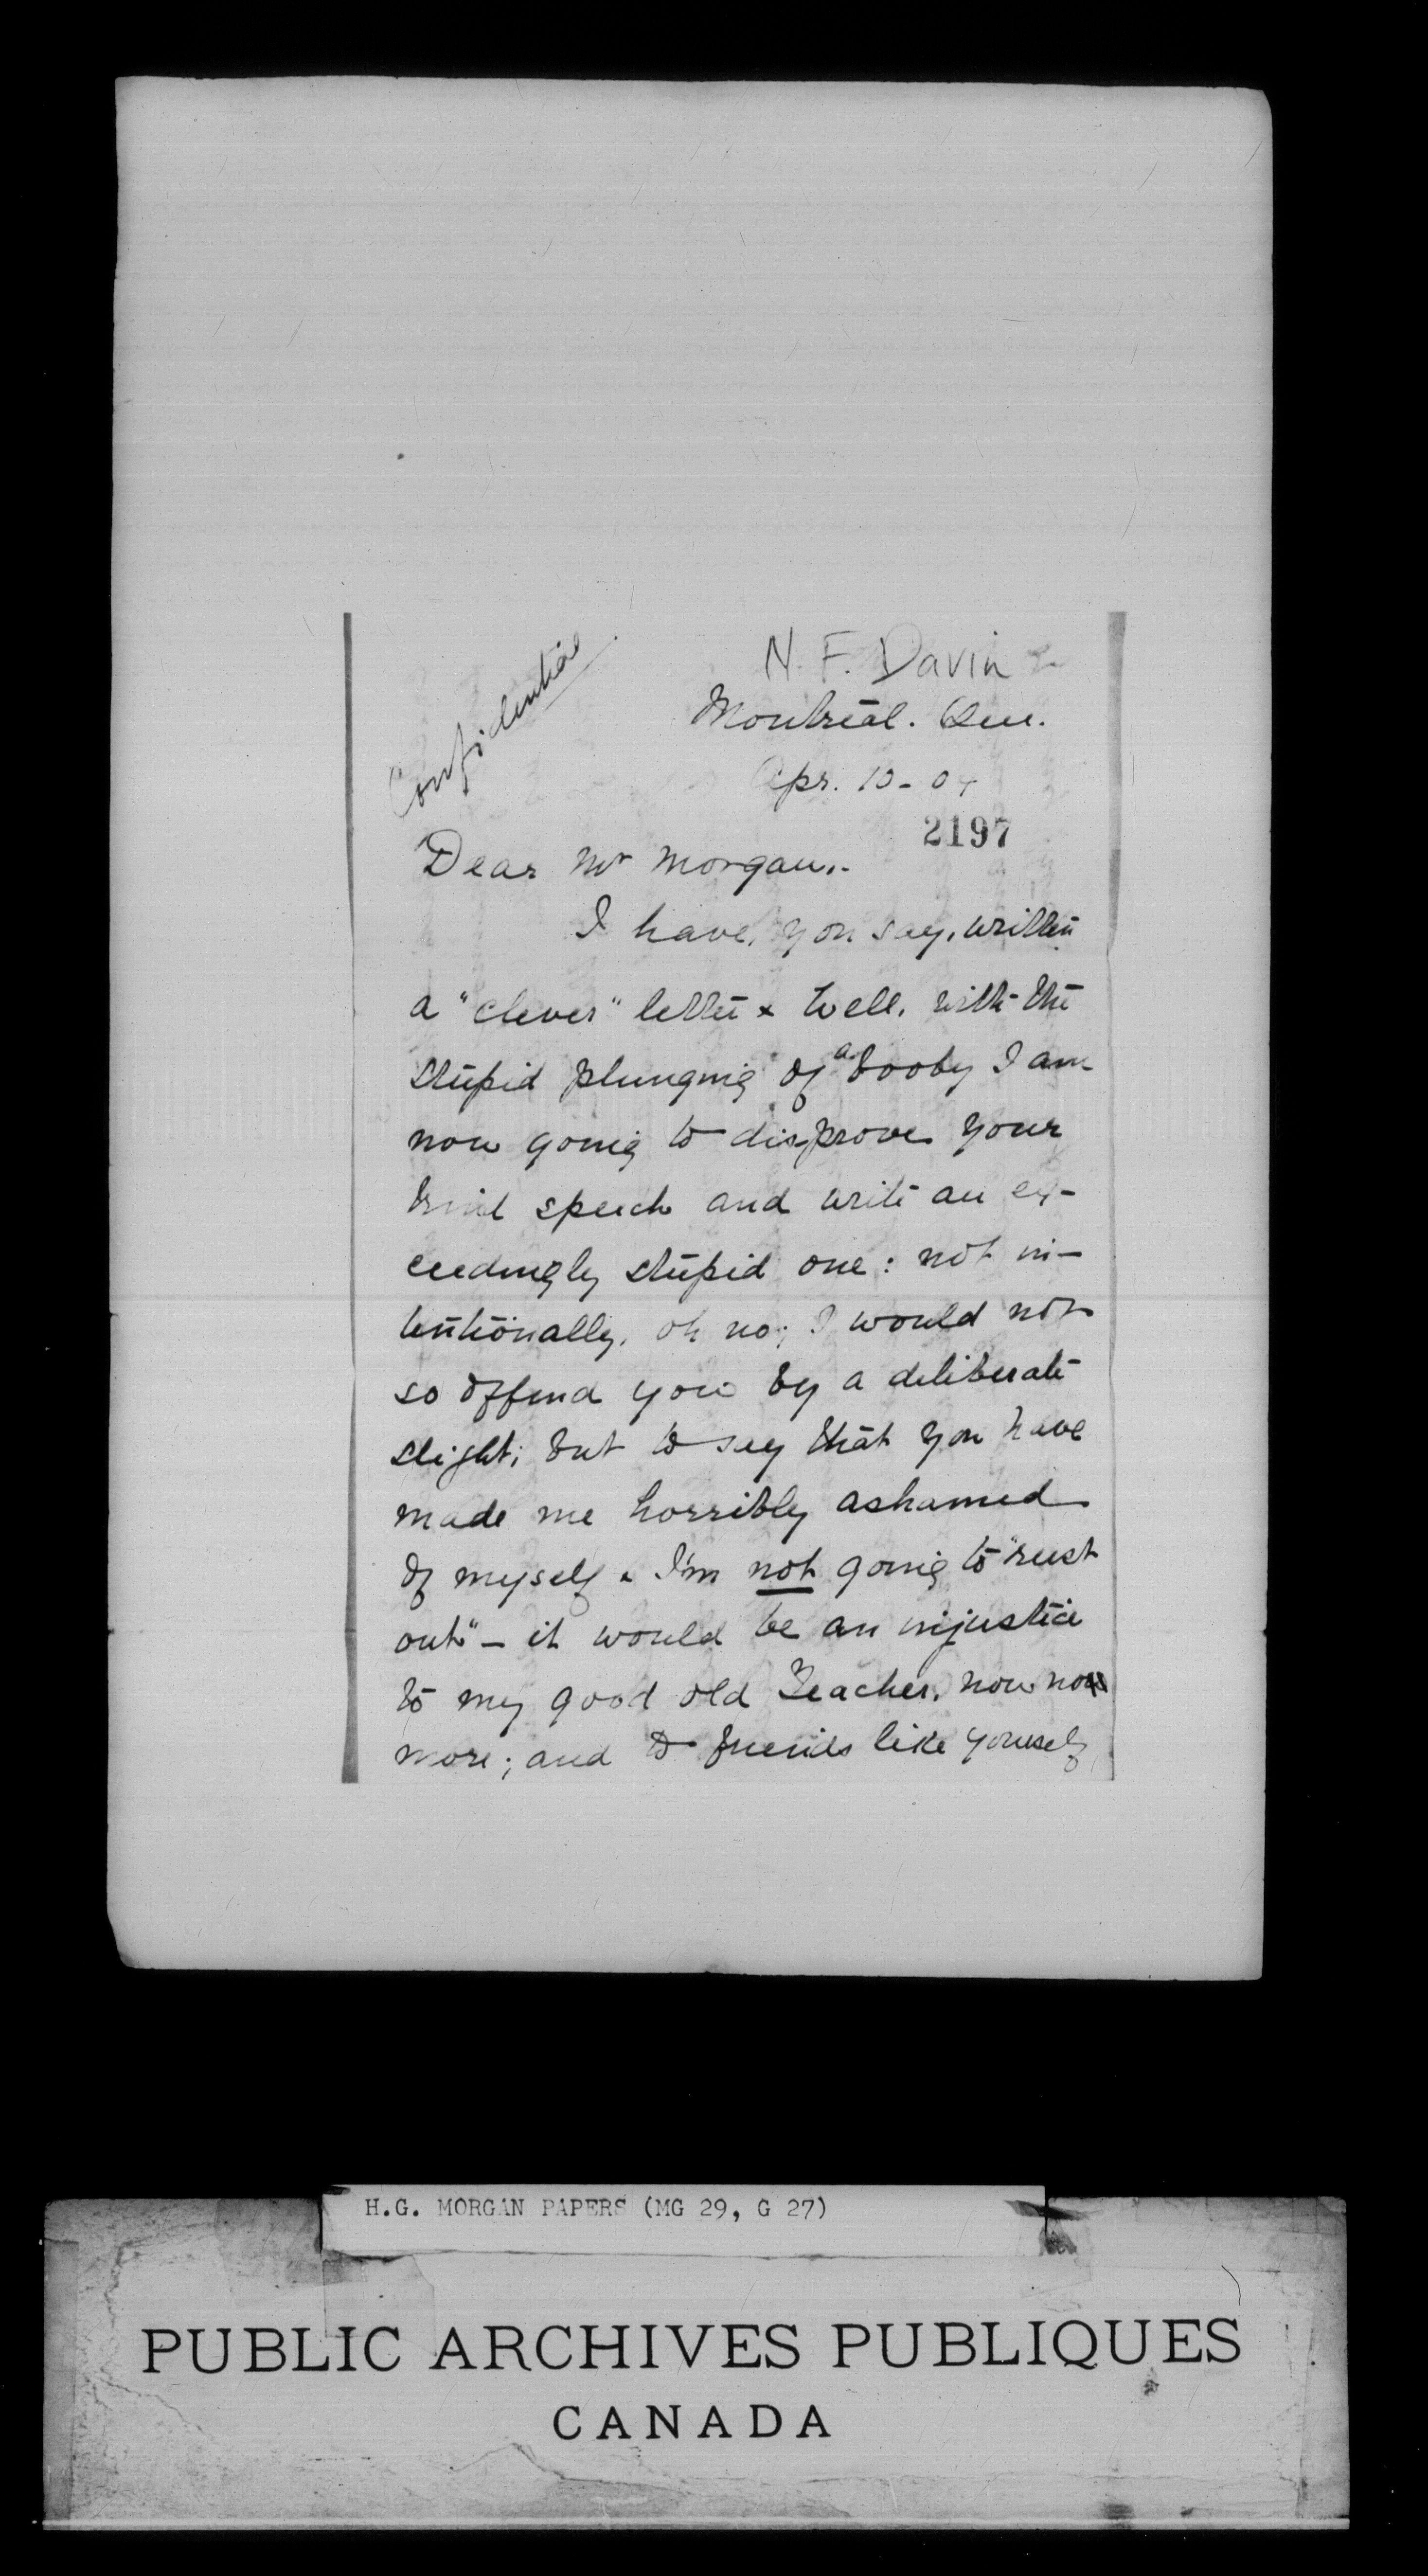 Confidential.
N. F. Davin
Montreal. Que.
Apr. 10 - 04
2197
Dear Mr Morgan.-
I have, you say, written
a "clever" letter x Well, with the
stupid plunging of a booby I am
now going to disprove your
kind speech and write an ex-
ceedingly stupid one: not in-
tentionally, oh no; I would not
so offend you by a deliberate
slight; but to say that you have
made me horribly ashamed
of myself x I'm not going to "rust
out" - it would be an injustice
to my good old Teacher, now no
more; and to friends like yourself,
H.G. MORGAN PAPERS (MG 29, G 27)
PUBLIC ARCHIVES PUBLIQUES
CANADA